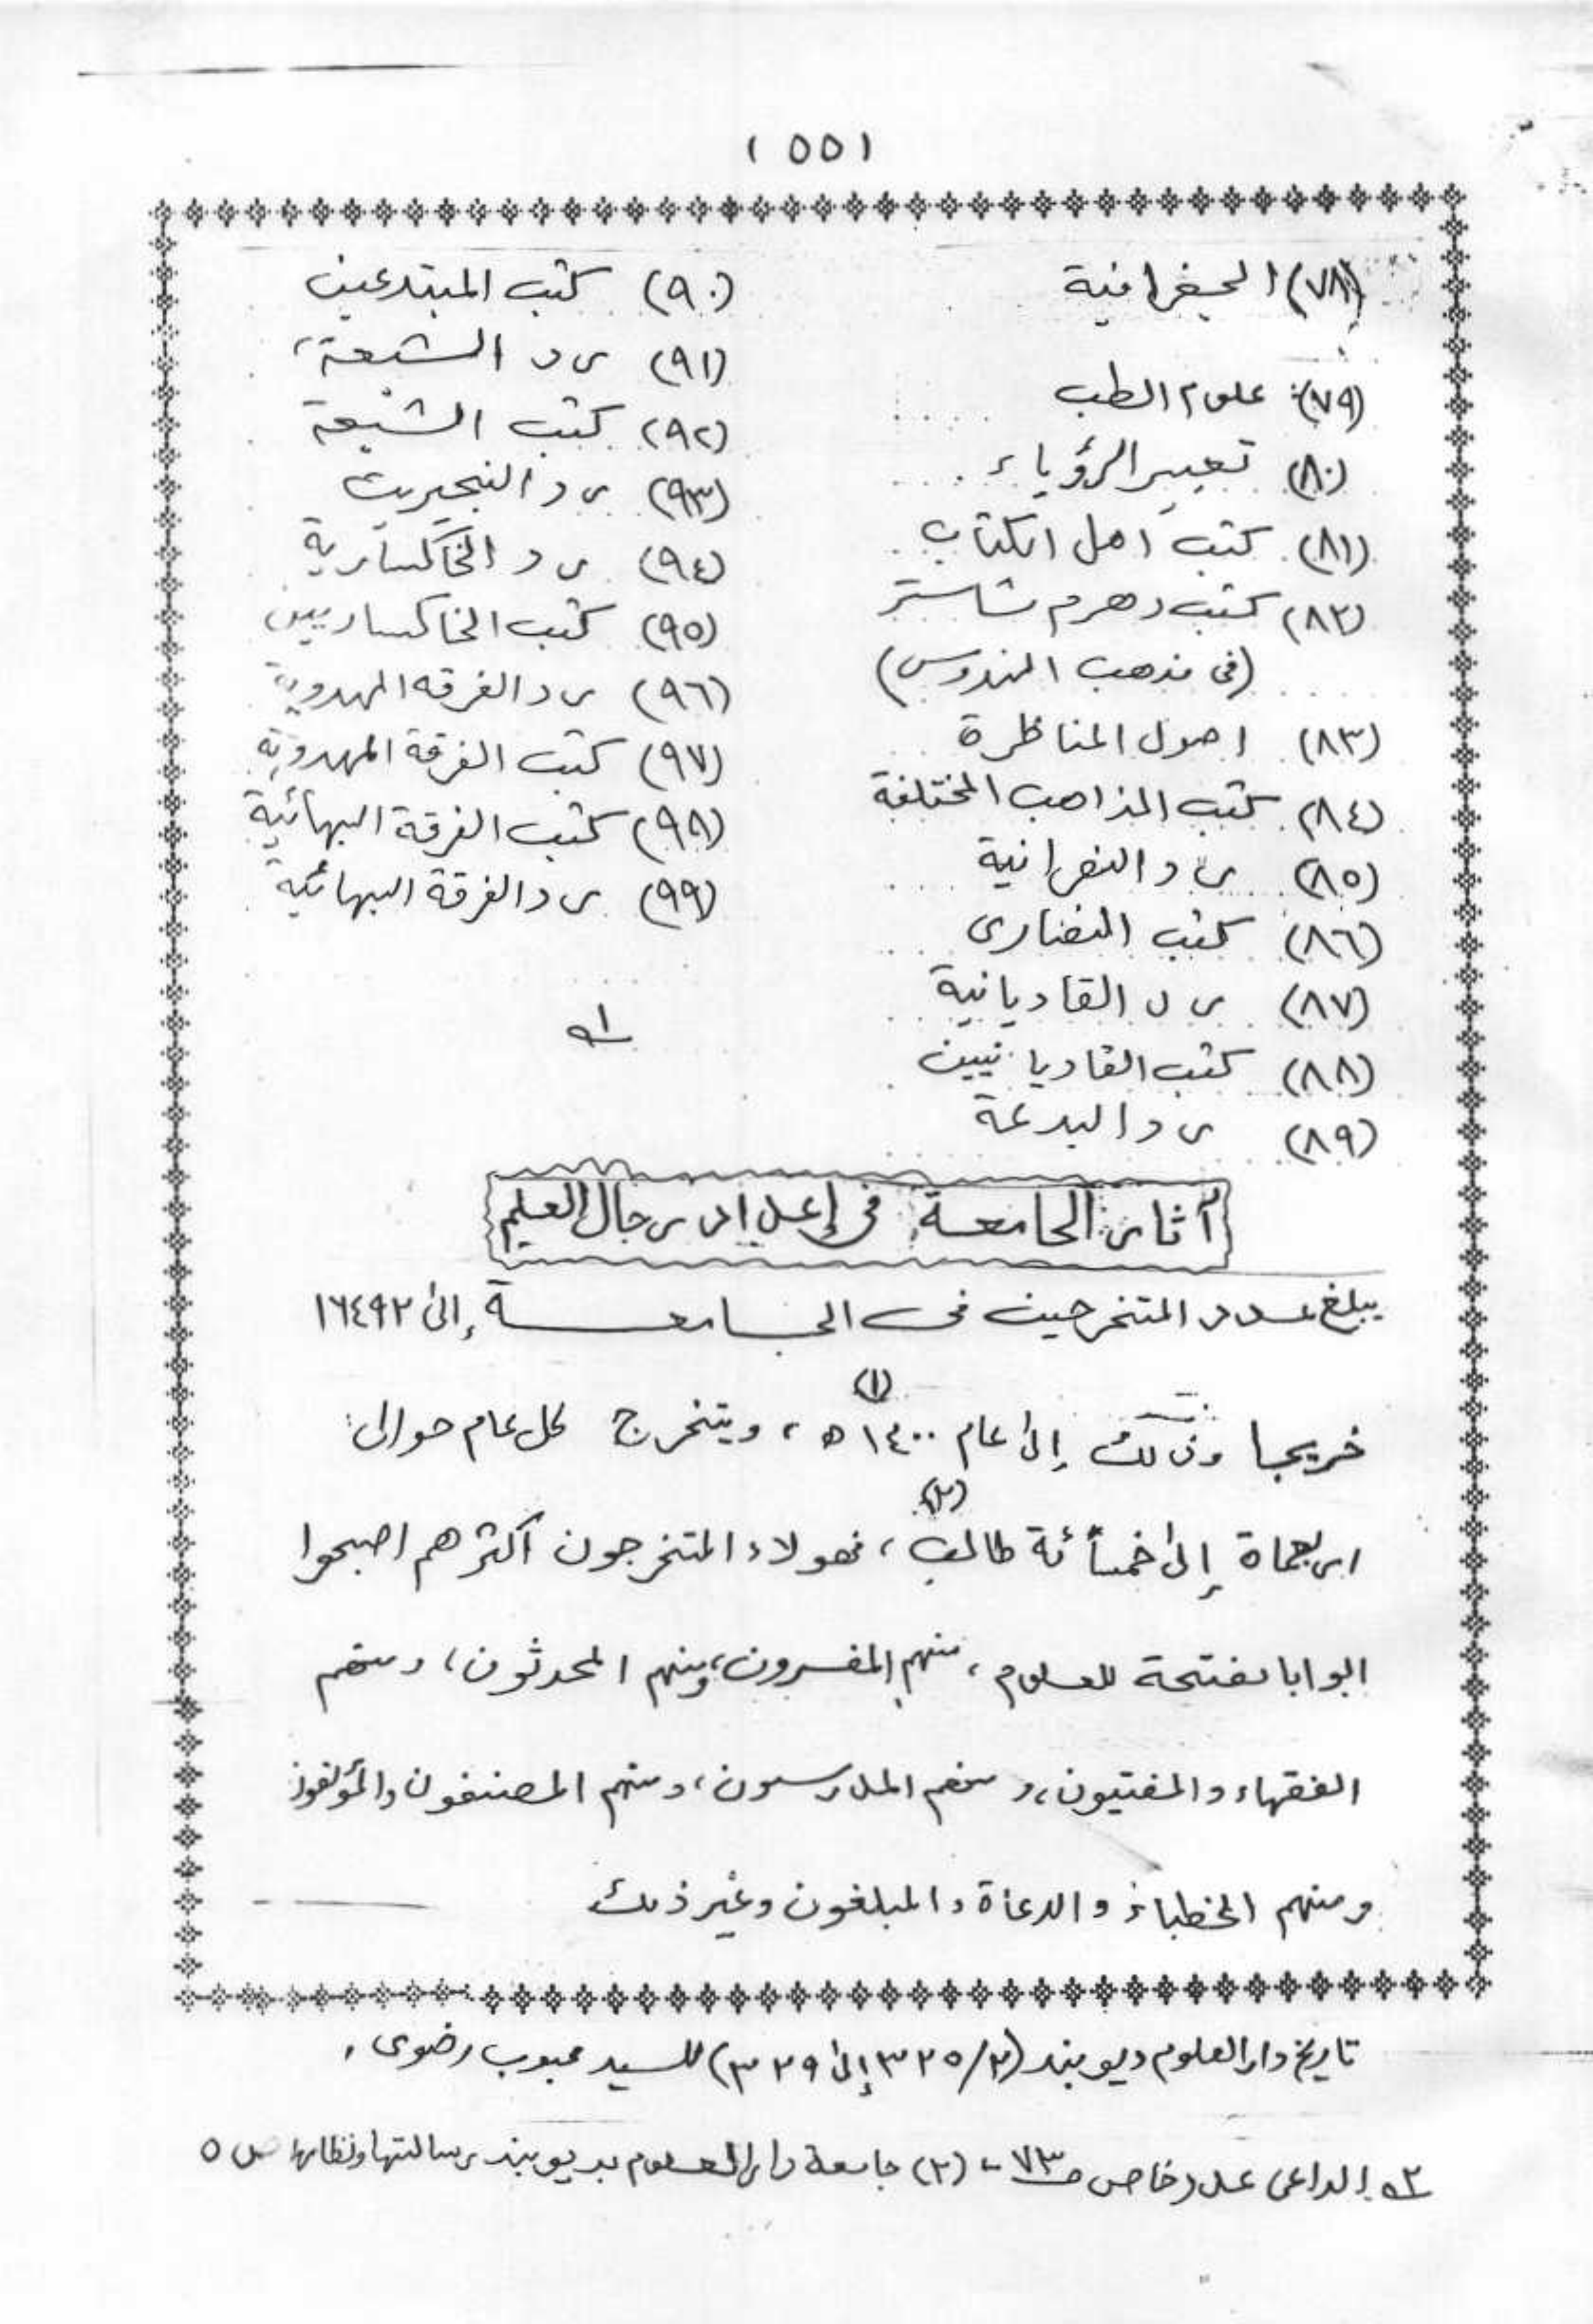 (٥٥)
(٧٨) الجغرافية
(٧٩) علوم الطب
(٨٠) تعبير الرؤياء
(٨١) كتب اهل الكتاب
(٨٢) كتب دهرم شاستر
(فى مذهب الهندوس)
(٨٣) اصول المناظرة
(٨٤) كتب المذاهب المختلفة
(٨٥) رد النصرانية
(٨٦) كتب النصارى
(٨٧) رد القاديانية
(٨٨) كتب القاديانيين
(٨٩) رد البدعة
(٩٠) كتب المبتدعين
(٩١) رد الشيعة،
(٩٢) كتب الشيعة
(٩٣) رد النيچيريت
(٩٤) رد الخاكسارية
(٩٥) كتب الخاكساريين
(٩٦) رد الفرقه المهدوية
(٩٧) كتب الفرقة المهدوية
(٩٨) كتب الفرقة البهائية
(٩٩) رد الفرقة البهائية
١ه
آثار الجامعة فى إعداد رجال العلم
يبلغ عدد المتخرجين فى الجامعة إلى ١٦٤٩٢
خريجا وذلك إلى عام ١٤٠٠ه (١)، ويتخرج كل عام حوالى
اربعمأة إلى خمسمأئة طالب (٢)، فهولاء المتخرجون اكثرهم اصبحوا
ابوابا مفتحة للعلوم، منهم المفسرون، ومنهم المحدثون، ومنهم
الفقهاء والمفتيون، ومنهم المدرسون، ومنهم المصنفون والمؤلفون
ومنهم الخطباء والدعاة والمبلغون وغير ذلك
تاريخ دار العلوم ديوبند (٢/٣٢٥ إلى ٣٢٩) للسيد محبوب رضوى،
٢ه الداعى عدد خاص ص٧٣ - (٢) جامعة دار العلوم بديوبند رسالتها ونظامها ص ٥